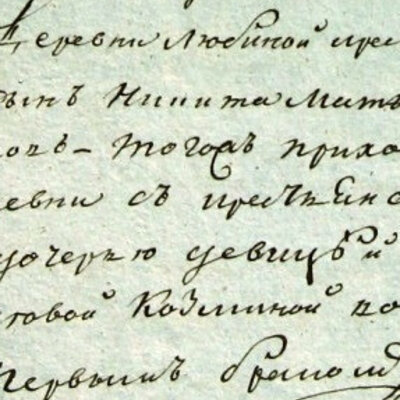 Деревни Любиной крес
сынъ Никита Мат
тогожъ прихо
ревни съ кресть
дочерью девицъй
ковой Козминой
первымъ бракомъ